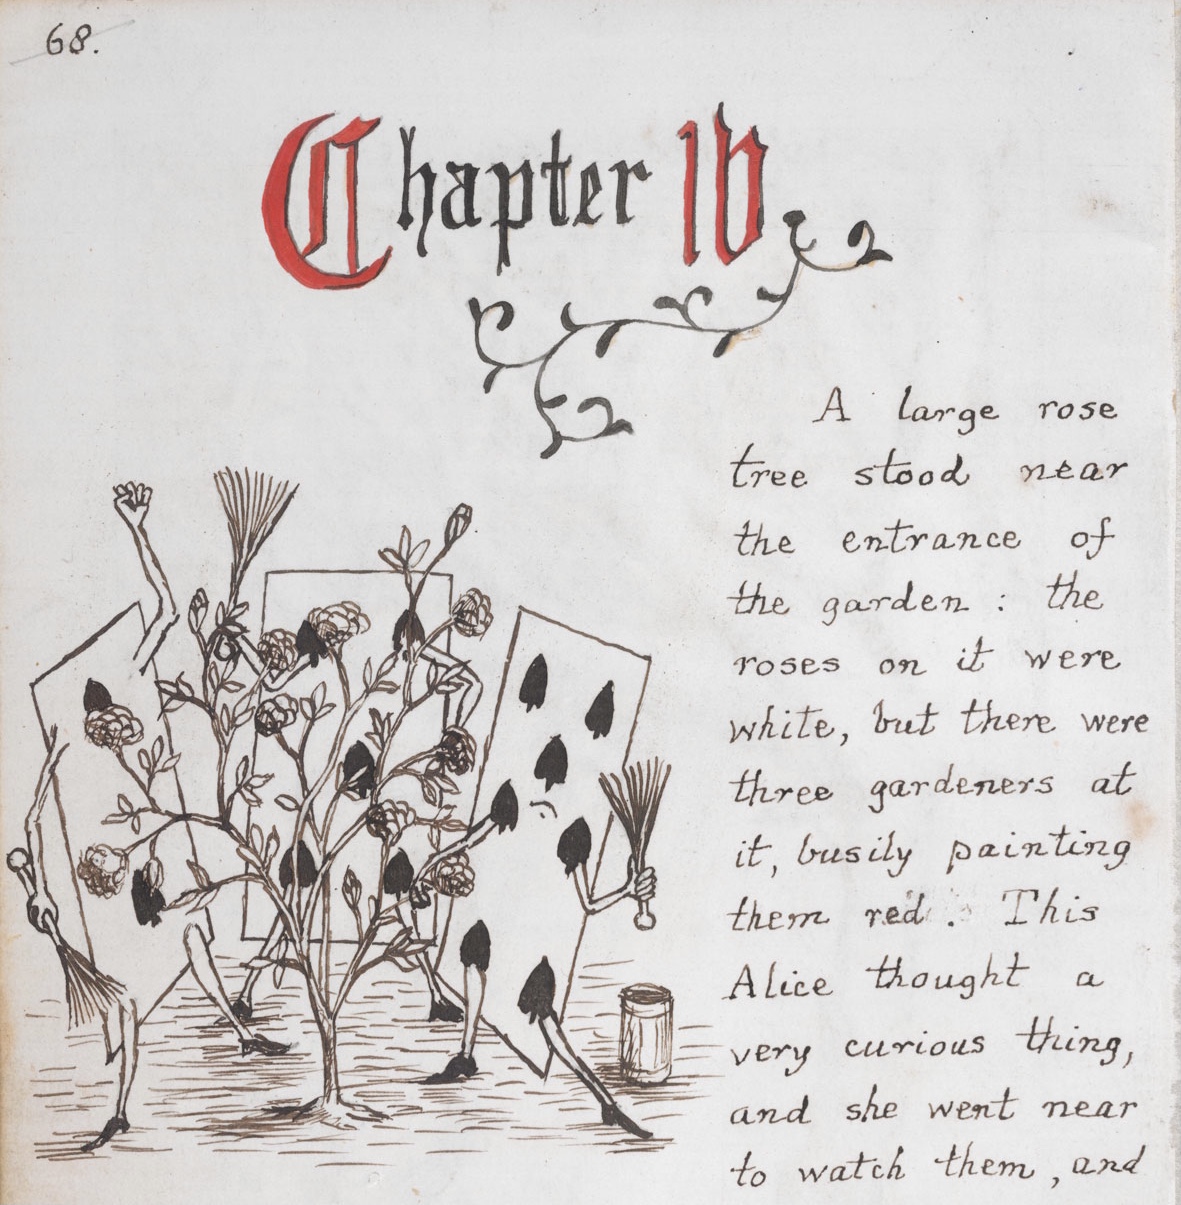 68.
Chapter IV
A large rose
tree stood near
the entrance of
the garden : the
roses on it were
white, but there were
three gardeners at
it, busily painting
them red . This
Alice thought a
very curious thing,
and she went near
to watch them, and